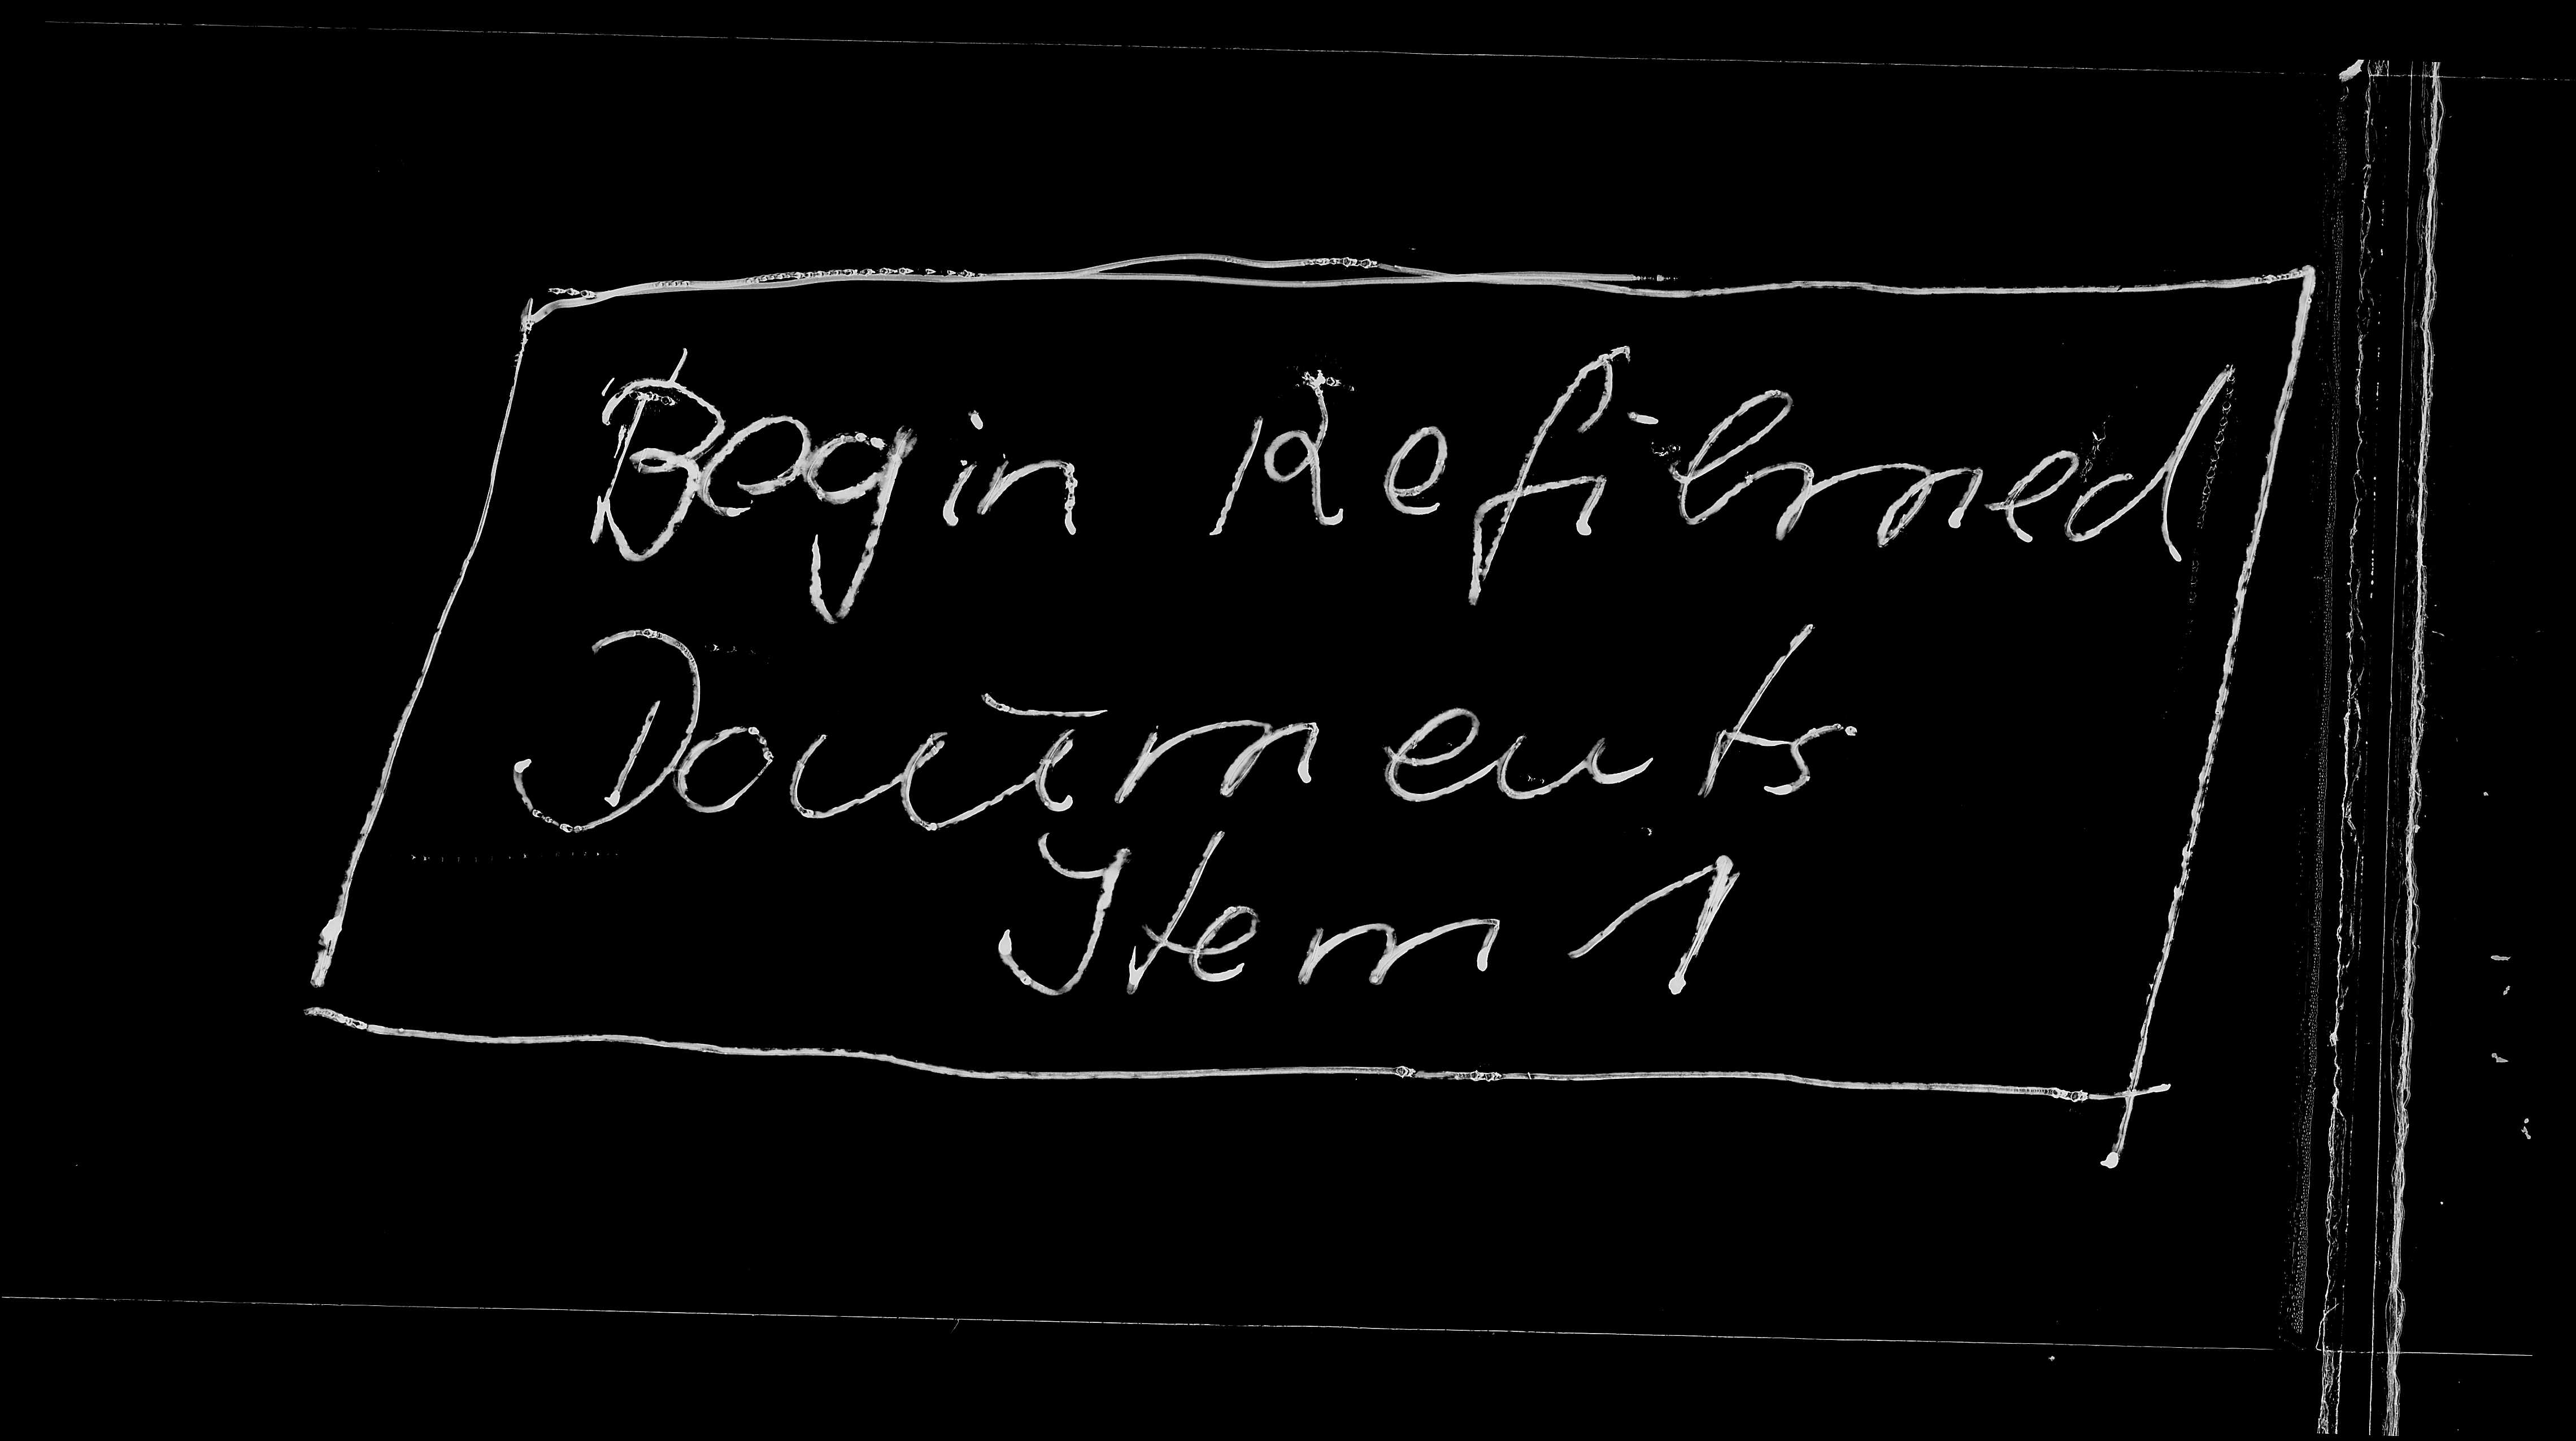 Begin Refilmed
Documents
Item 1